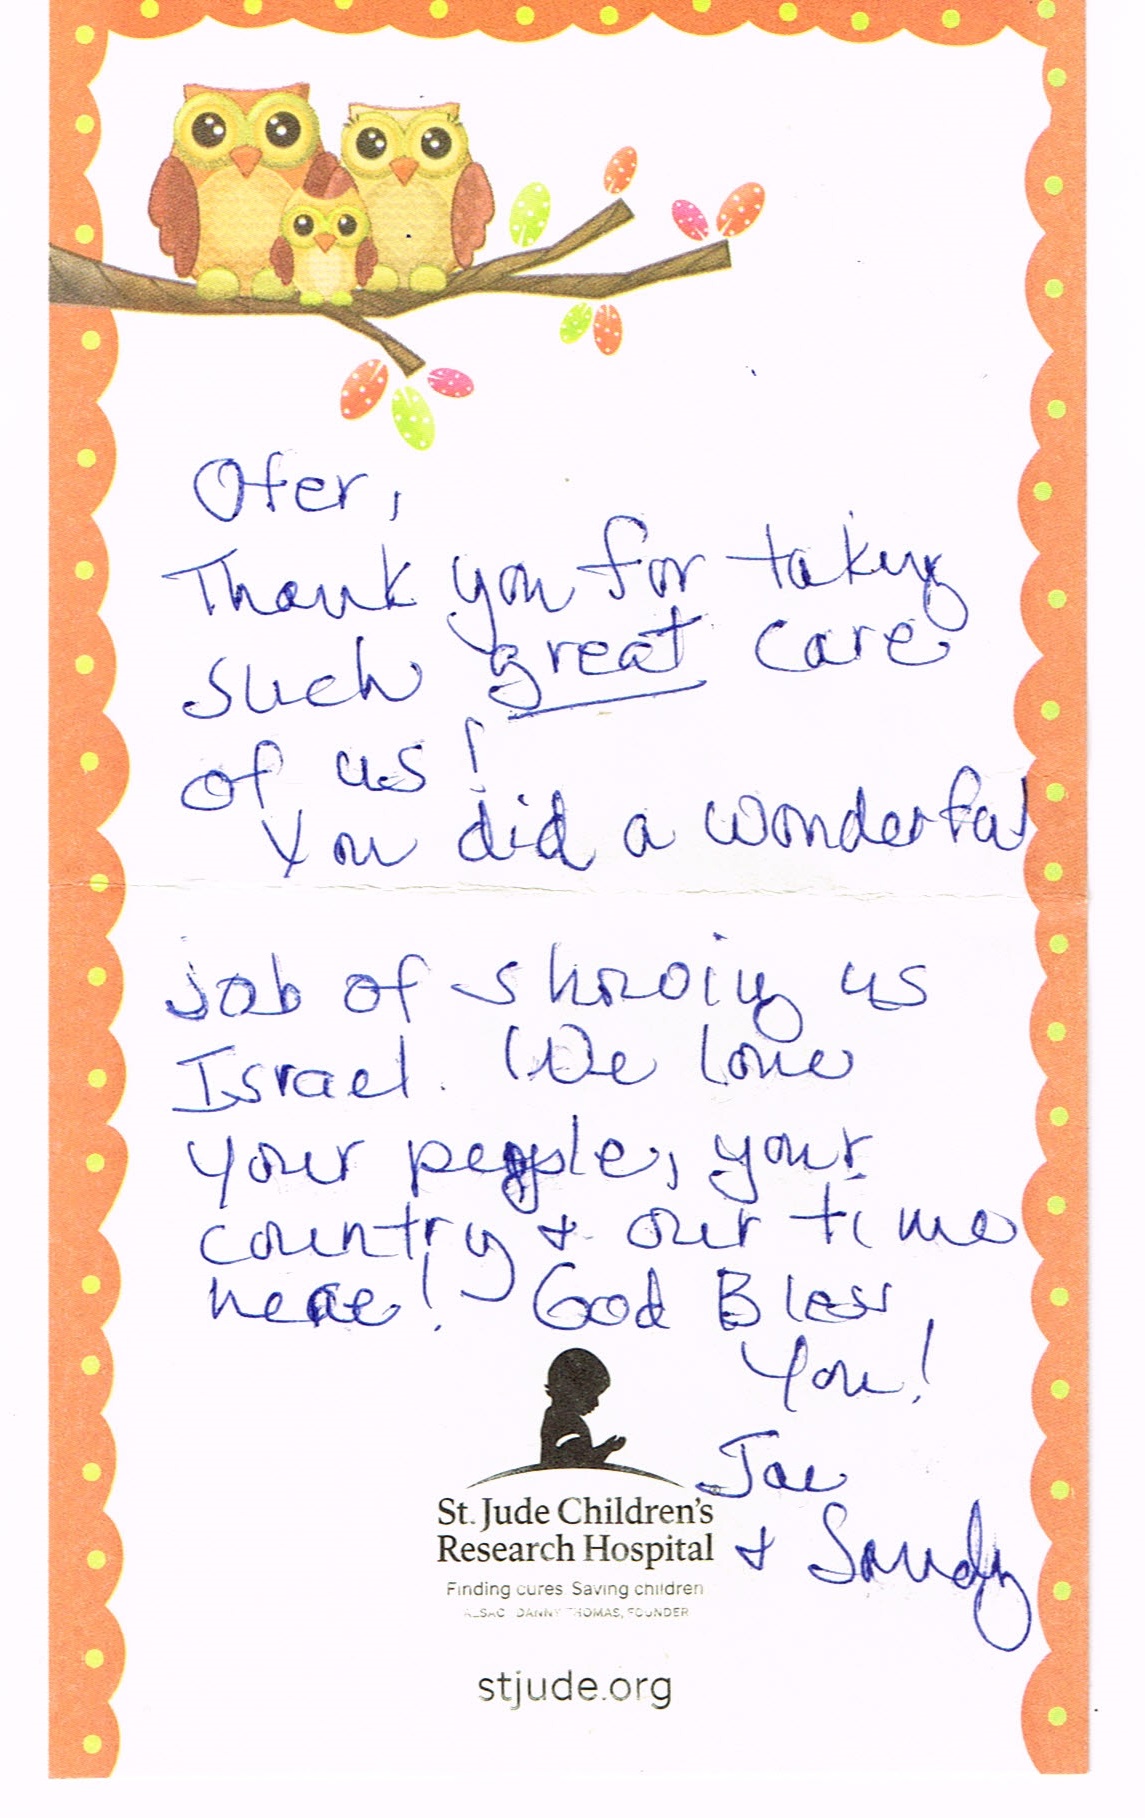 Ofer,
Thank you for taking
such great care
of us!
You did a wonderful
job of showing us
Israel. We love
your people, your
country & our time
here! God Bless
You!
Joe
& Sandy
St. Jude Children's
Research Hospital
Finding cures. Saving children.
ALSAC · DANNY THOMAS, FOUNDER
stjude.org